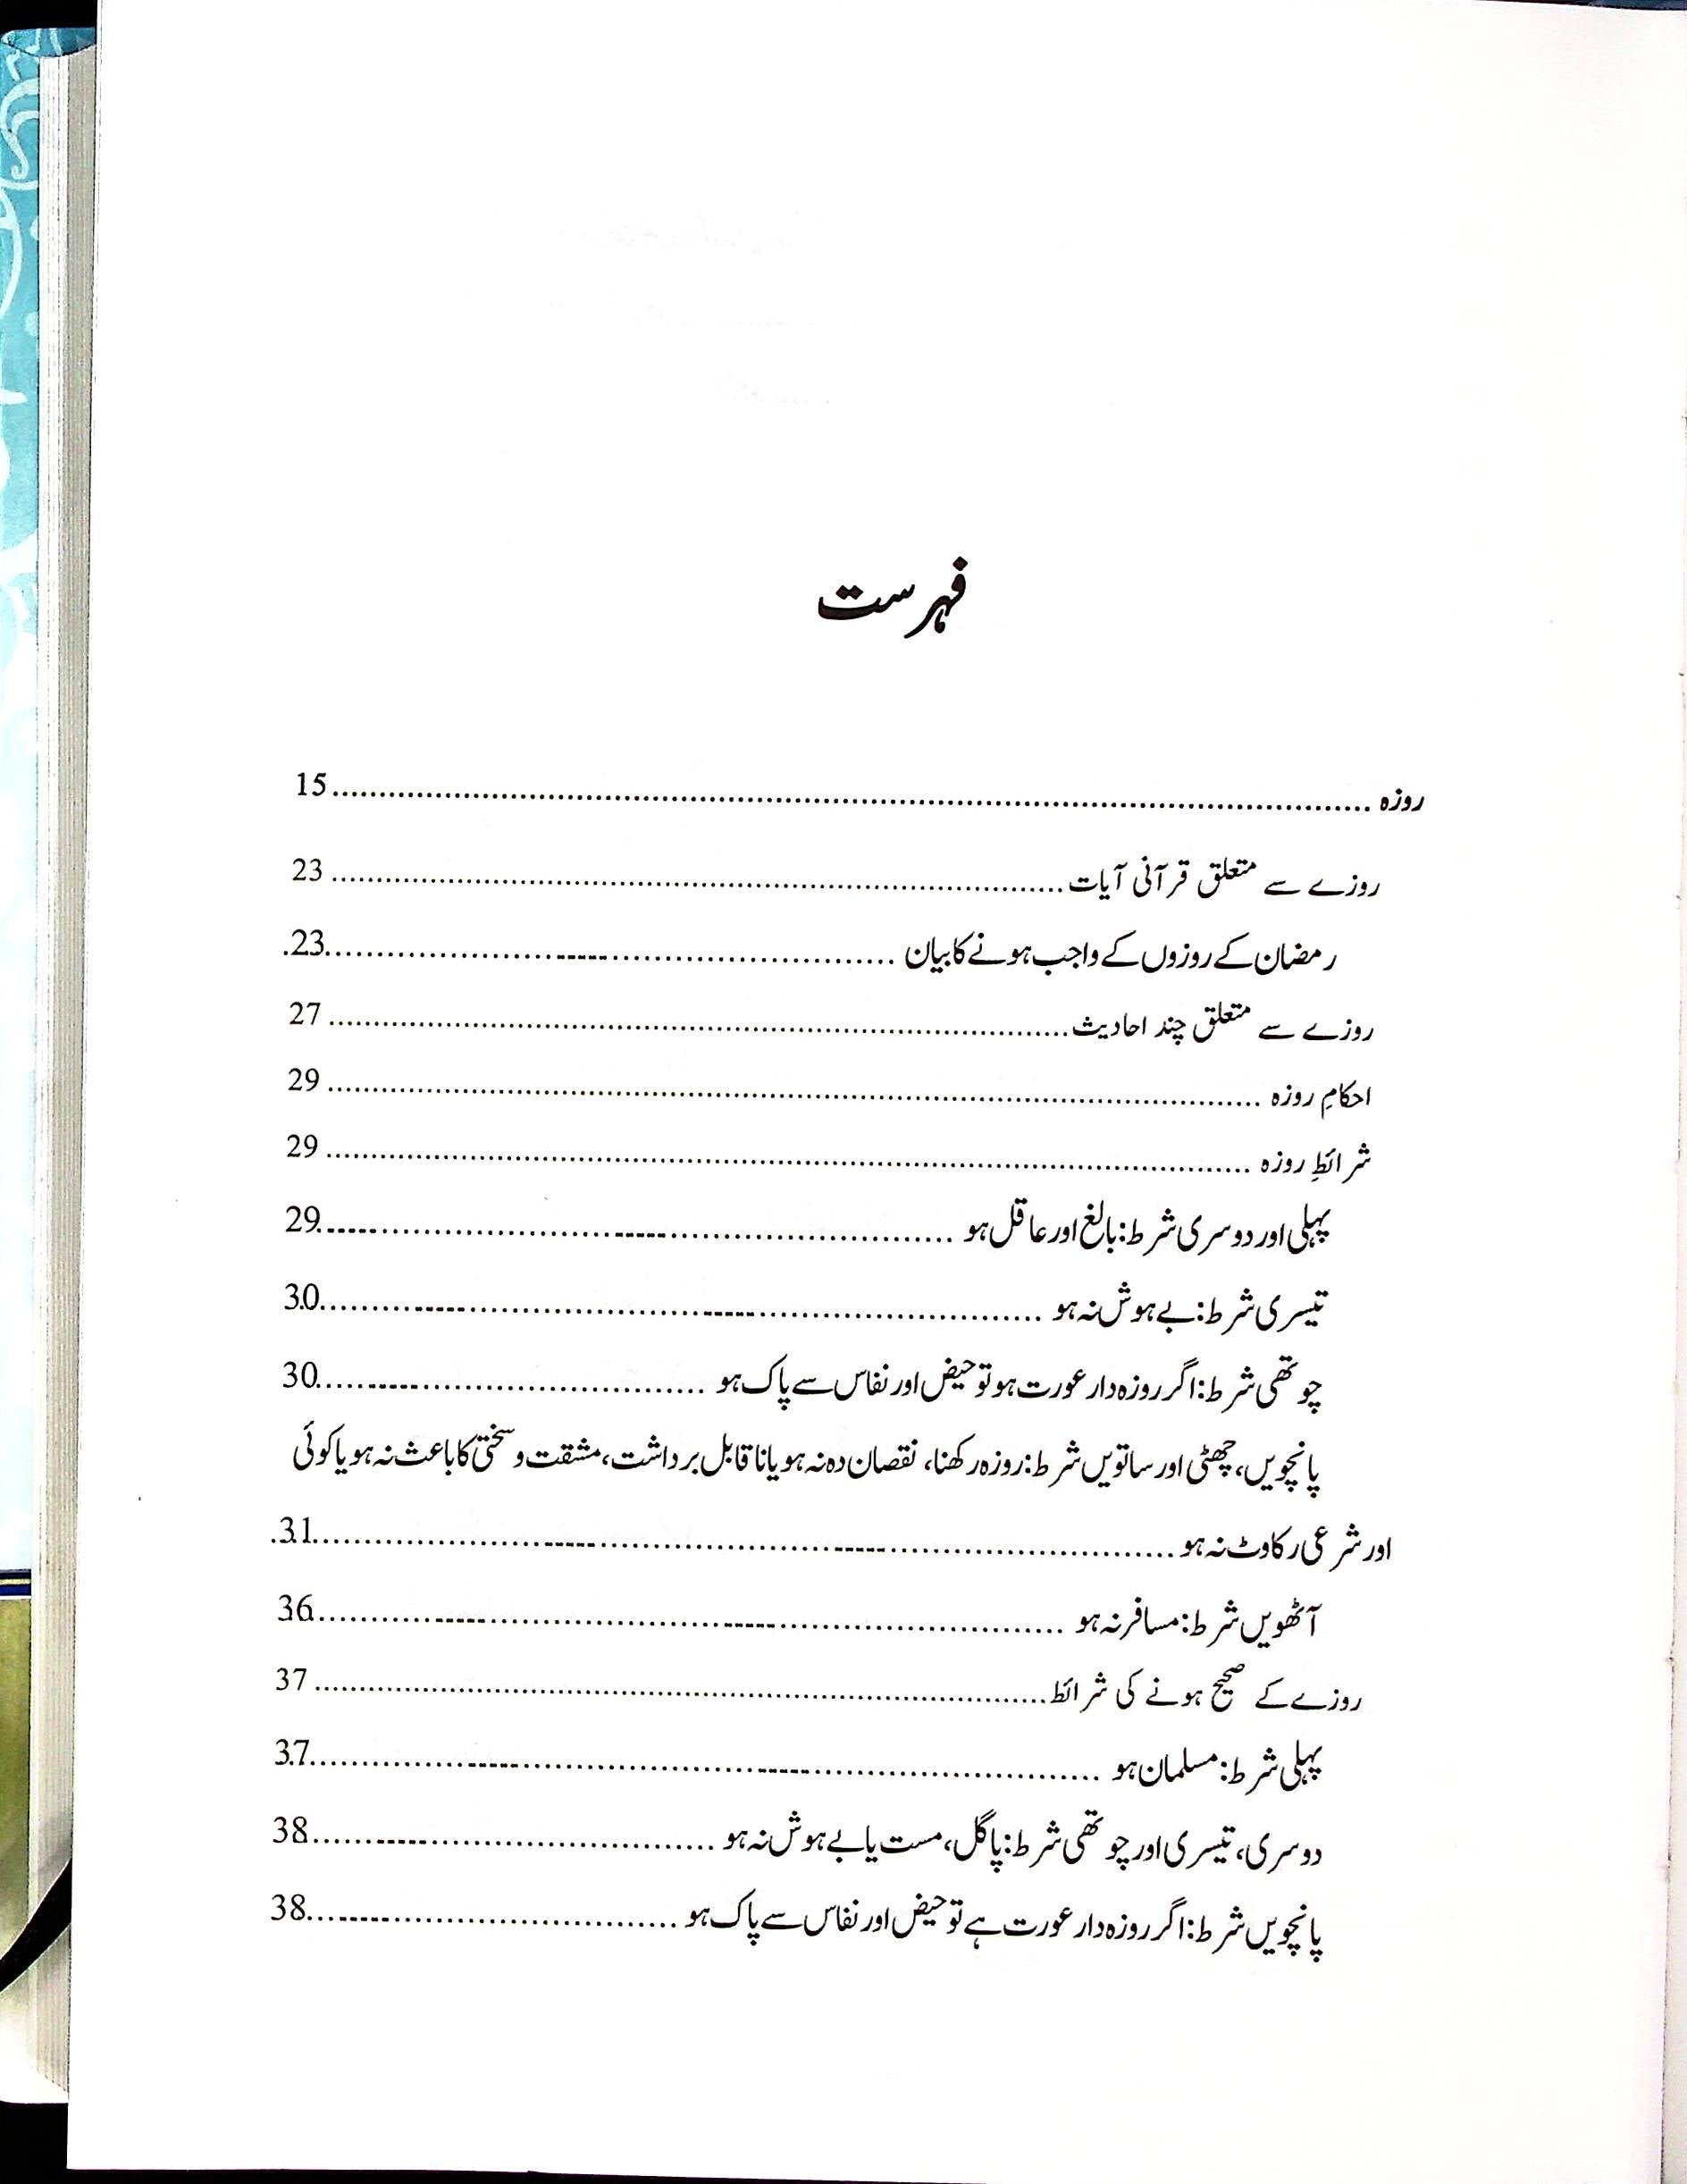 فہرست
روزہ ........ 15
روزے سے متعلق قرآنی آیات ........ 23
رمضان کے روزوں کے واجب ہونے کا بیان ........ 23
روزے سے متعلق چند احادیث ........ 27
احکامِ روزہ ........ 29
شرائطِ روزہ ........ 29
پہلی اور دوسری شرط: بالغ اور عاقل ہو ........ 29
تیسری شرط: بے ہوش نہ ہو ........ 30
چوتھی شرط: اگر روزہ دار عورت ہو تو حیض اور نفاس سے پاک ہو ........ 30
پانچویں، چھٹی اور ساتویں شرط: روزہ رکھنا، نقصان دہ نہ ہو یا ناقابل برداشت، مشقت و سختی کا باعث نہ ہو یا کوئی
اور شرعی رکاوٹ نہ ہو ........ 31
آٹھویں شرط: مسافر نہ ہو ........ 36
روزے کے صحیح ہونے کی شرائط ........ 37
پہلی شرط: مسلمان ہو ........ 37
دوسری، تیسری اور چوتھی شرط: پاگل، مست یا بے ہوش نہ ہو ........ 38
پانچویں شرط: اگر روزہ دار عورت ہے تو حیض اور نفاس سے پاک ہو ........ 38